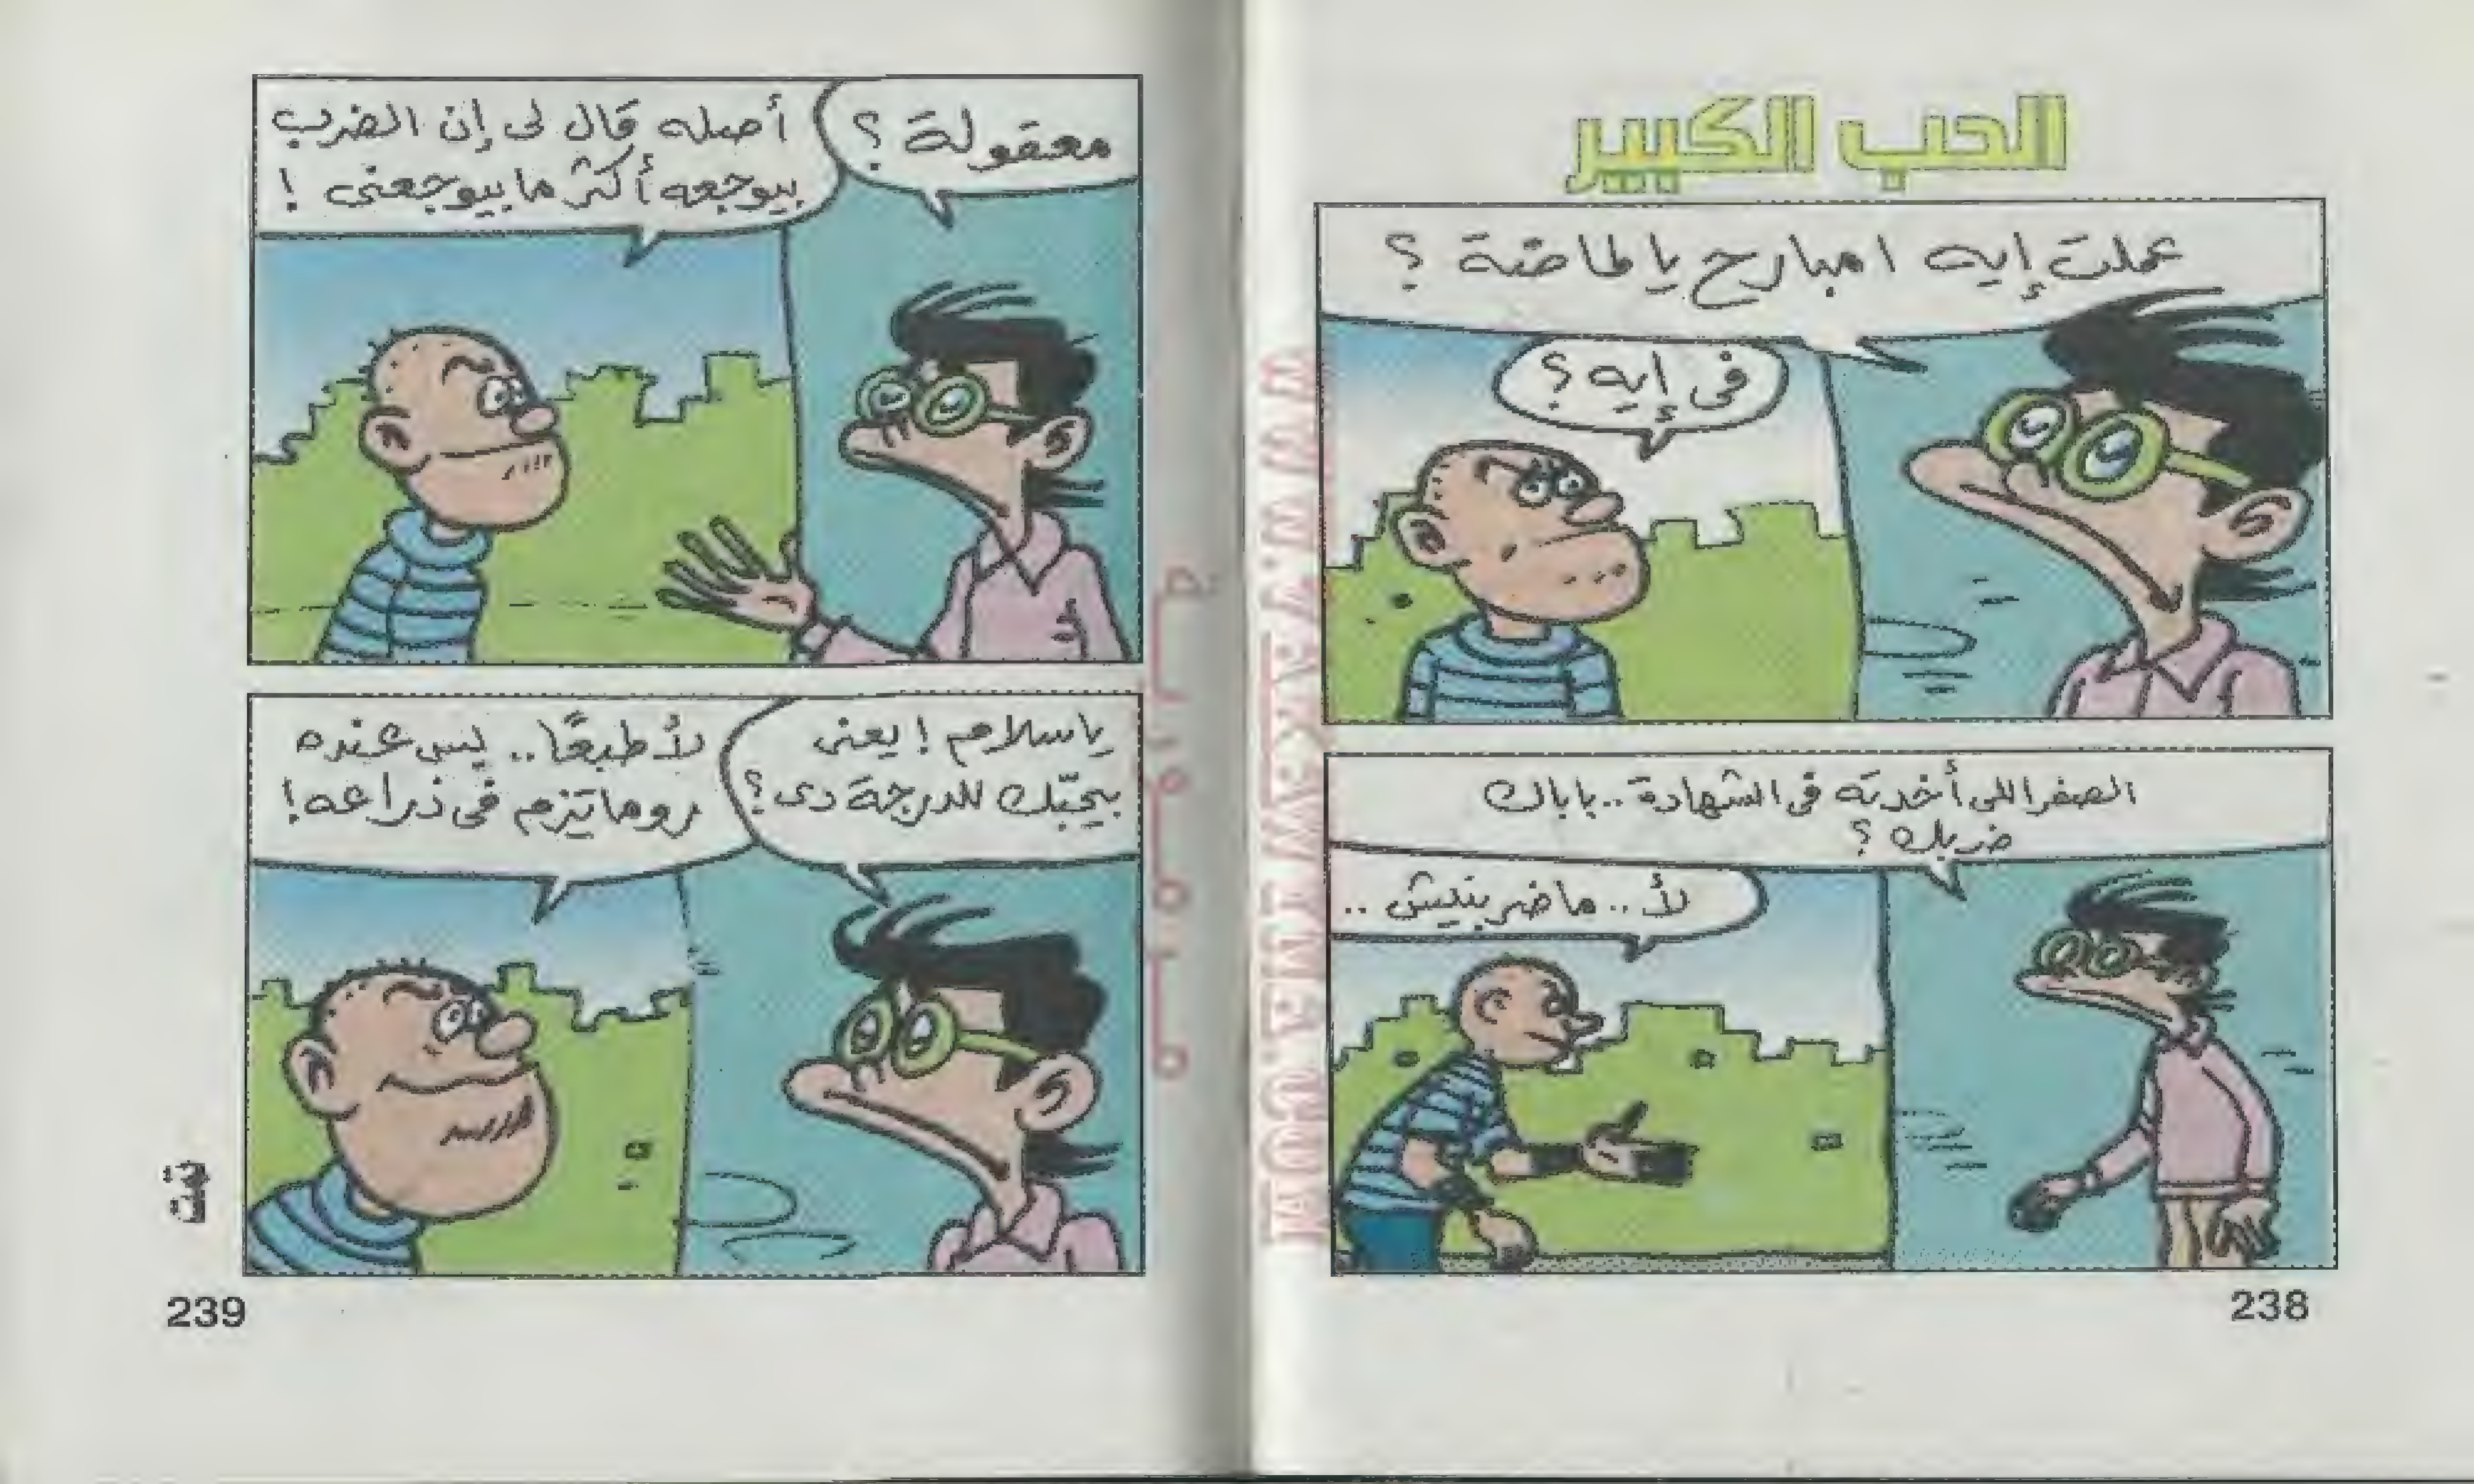 الحب الكبير
عملت إيه امبارح يا طاخة ؟
فى إيه ؟
الصفر اللى أخدته فى الشهادة .. باباك
ضربك ؟
لأ .. ما ضربنيش ..
238
معقولة ؟
أصله قال لى إن الضرب
بيوجعه أكثر ما بيوجعنى !
يا سلام ! يعنى
بيحبّك للدرجة دى ؟
لأ طبعًا .. ليس عنده
روماتيزم فى ذراعه !
تمت
239